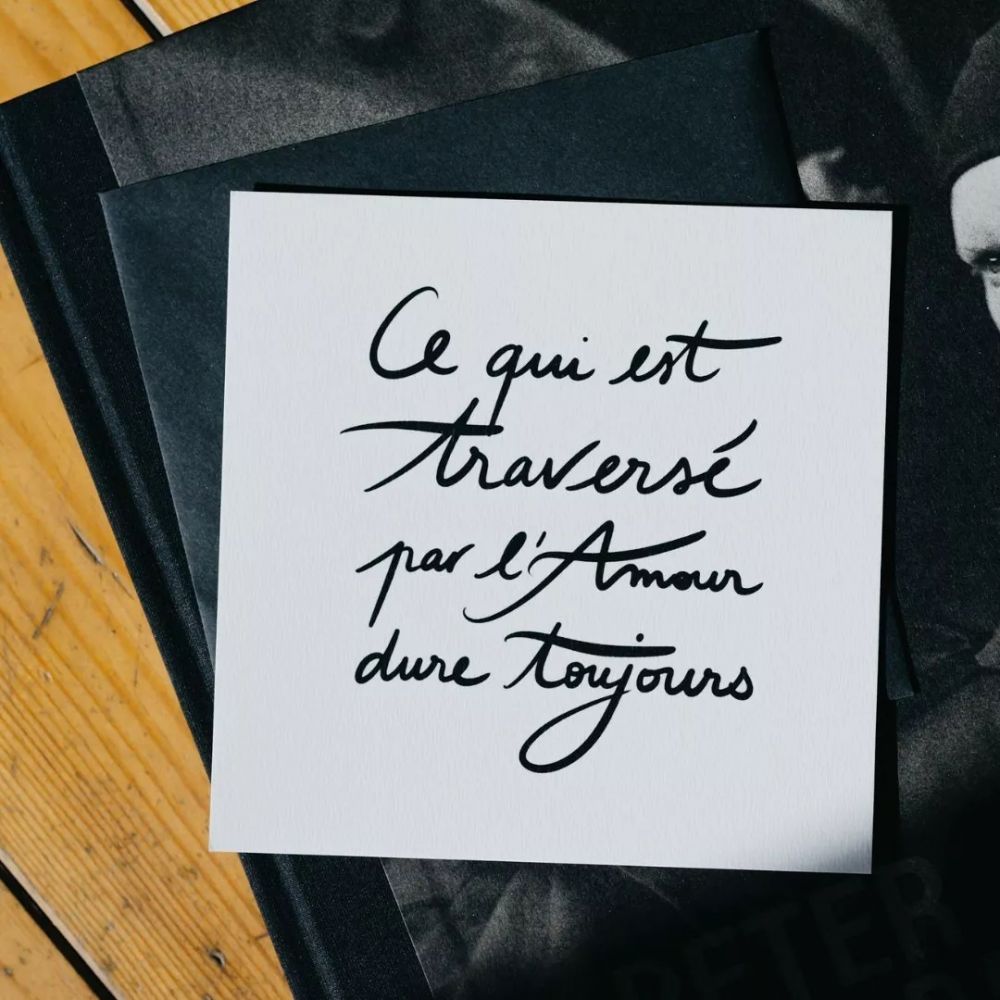 Ce qui est
traversé
par l'Amour
dure toujours
PETER